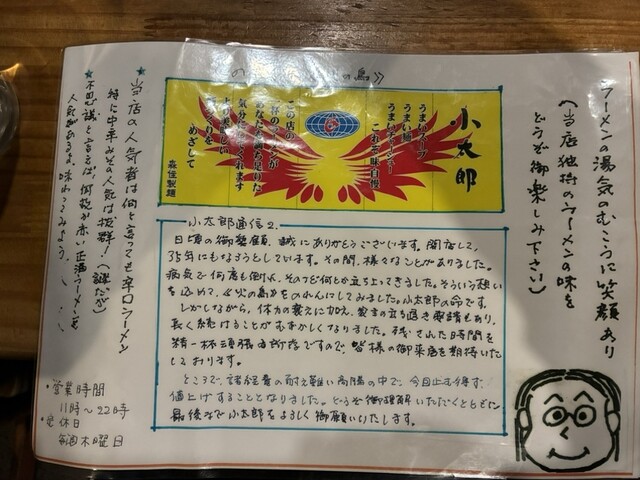 ラーメンの湯気のむこうに笑顔あり
(当店独特のラーメンの味を
どうぞ御楽しみ下さい)
の鳥》
小太郎
うまいスープ
うまい麺
うまいチャーシュー
これぞ三味自慢
この店の
一杯のラーメンが
あなたを満ち足りた
気分にしてくれます
めざして
森住製麺
小太郎通信2.
日頃の御愛顧、誠にありがとうございます。開店して、
35年にもなろうとしています。その間、様々なことがありました。
病気で何度も倒れ、そのつど何とか立ち上ってきました。そういう想い
を込めて、《火の鳥》をのれんにしてみました。小太郎の命です。
しかしながら、体力の衰えに加え、家主の立ち退き要請もあり、
長く続けることがむずかしくなりました。残された時間を
精一杯頑張る所存ですので、皆様の御来店を期待いた
しております。
ところで、諸経費の耐え難い高騰の中で、今回止む得ず、
値上げすることとなりました。どうぞ御理解いただくとともに
最後まで小太郎をよろしく御願いいたします。
★当店の人気者は何と言っても辛口ラーメン
特に中辛みその人気は抜群!(謎だが)
★不思議と言えば、何故か赤い正油ラーメンも
人気があるよ。味わってみよう。
・営業時間
11時~22時
・定休日
毎週木曜日